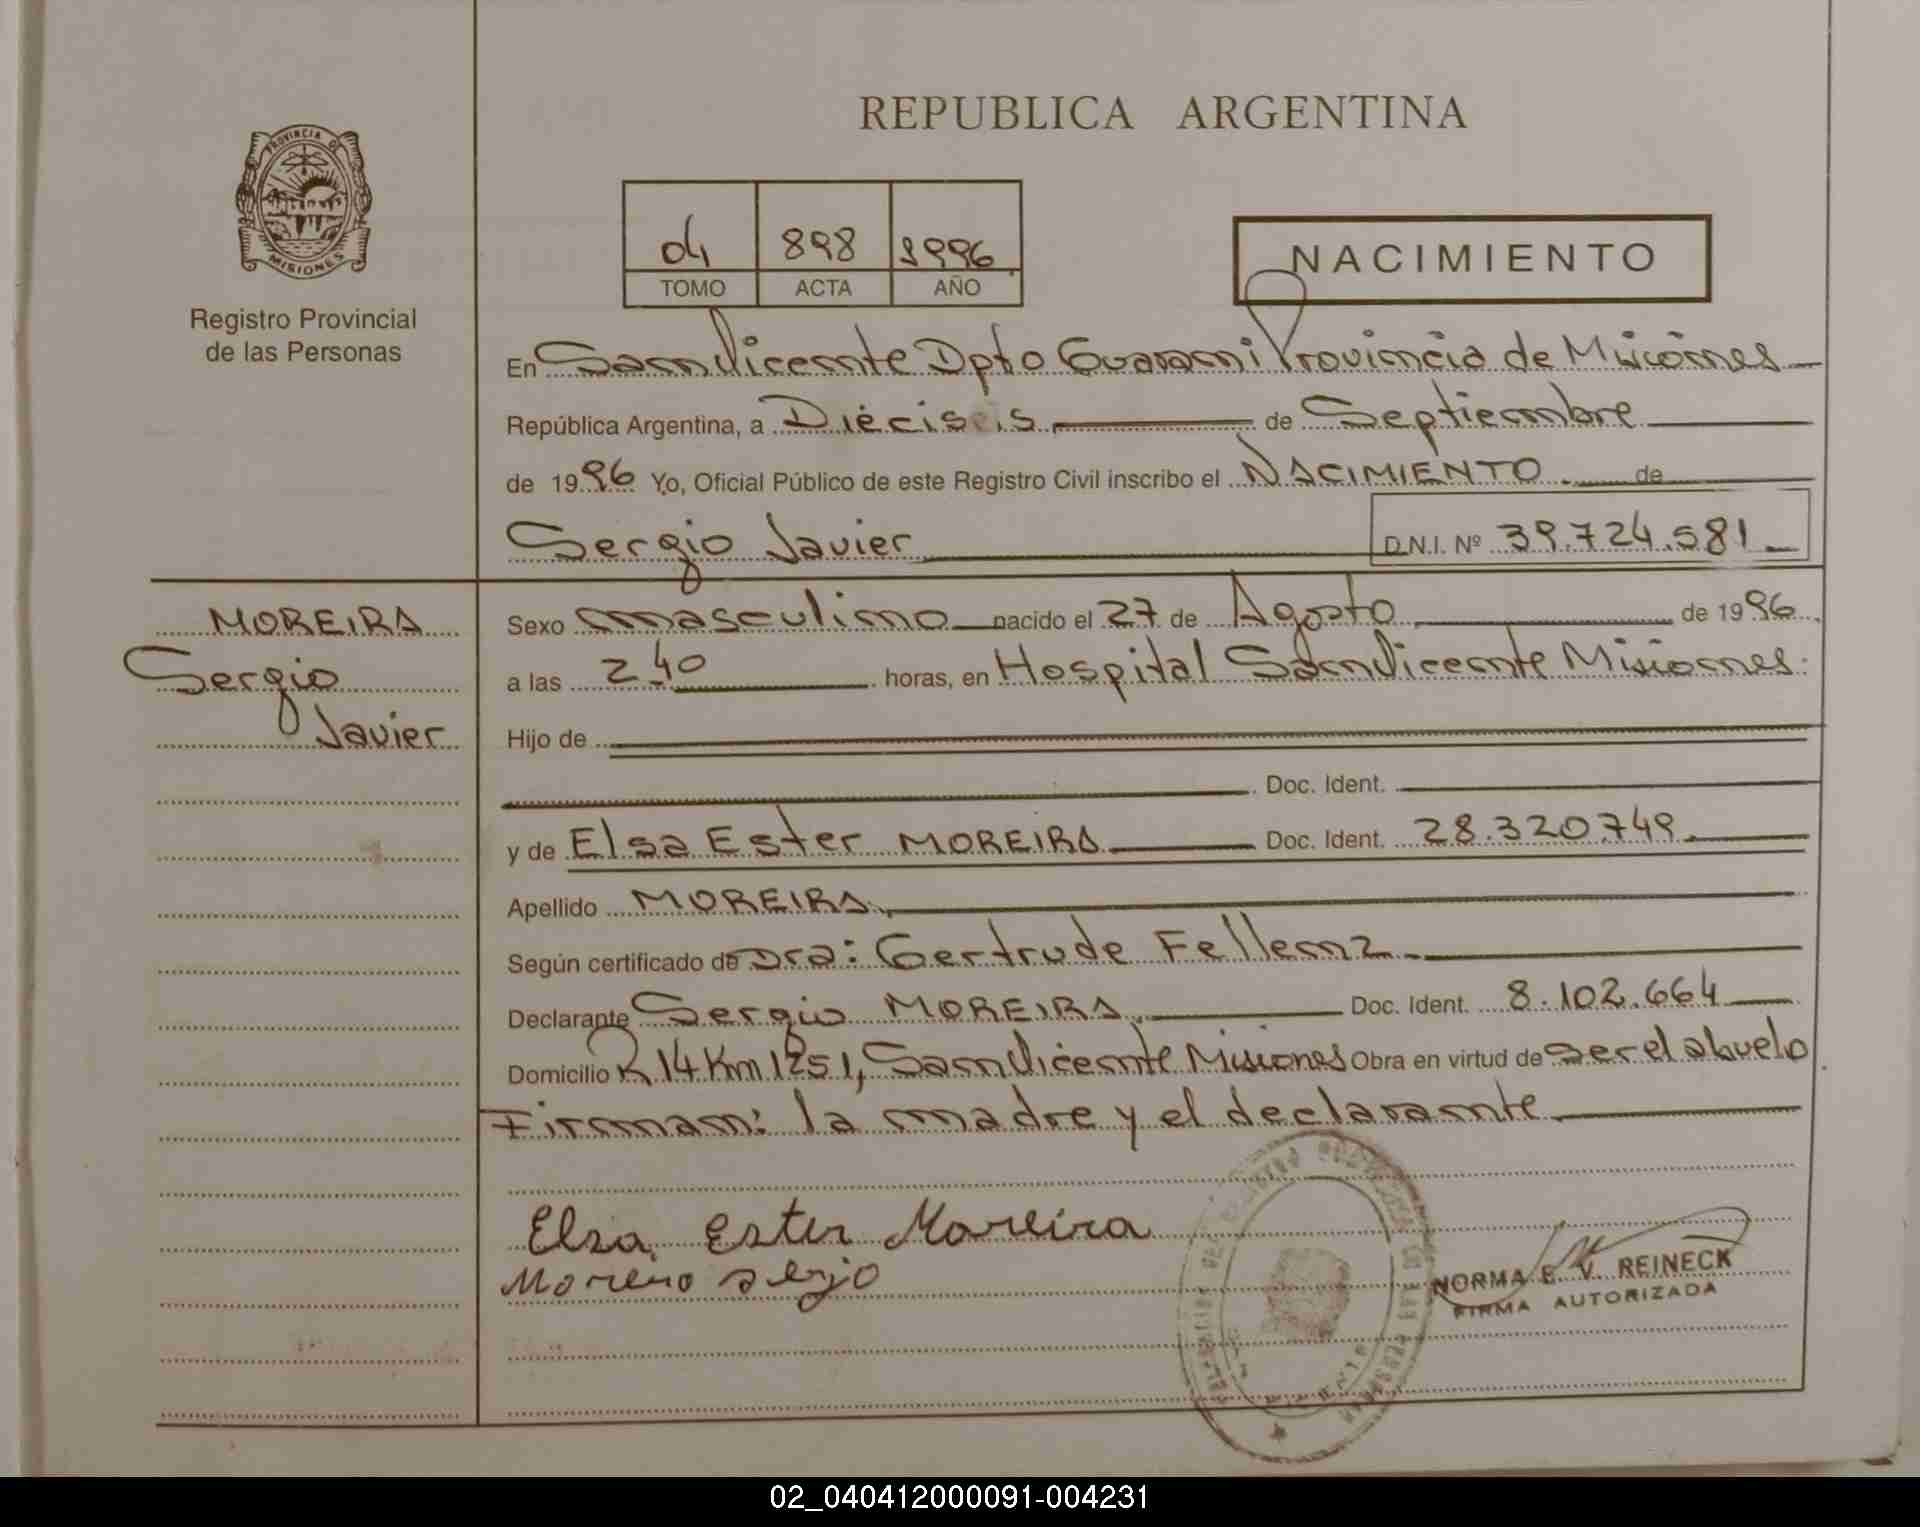 REPUBLICA ARGENTINA
PROVINCIA DE
MISIONES
Registro Provincial
de las Personas
04 898 1996
TOMO ACTA AÑO
NACIMIENTO
En San Vicente Dpto Guarani Provincia de Misiones
República Argentina, a Dieciseis de Septiembre
de 1996 Yo, Oficial Público de este Registro Civil inscribo el NACIMIENTO de
Sergio Javier D.N.I. Nº 39.724.581
MOREIRA
Sergio
Javier
Sexo masculino nacido el 27 de Agosto de 1996
a las 2 40 horas, en Hospital San Vicente Misiones.
Hijo de
Doc. Ident.
y de Elsa Ester MOREIRA Doc. Ident. 28.320.749.
Apellido MOREIRA
Según certificado de Dra: Gertrude Fellenz
Declarante Sergio MOREIRA Doc. Ident. 8.102.664
Domicilio R 14 Km 1251, San Vicente Misiones Obra en virtud de ser el abuelo
Firman: la madre y el declarante
Elsa Ester Moreira
NORMA E. V. REINECK
FIRMA AUTORIZADA
02_040412000091-004231